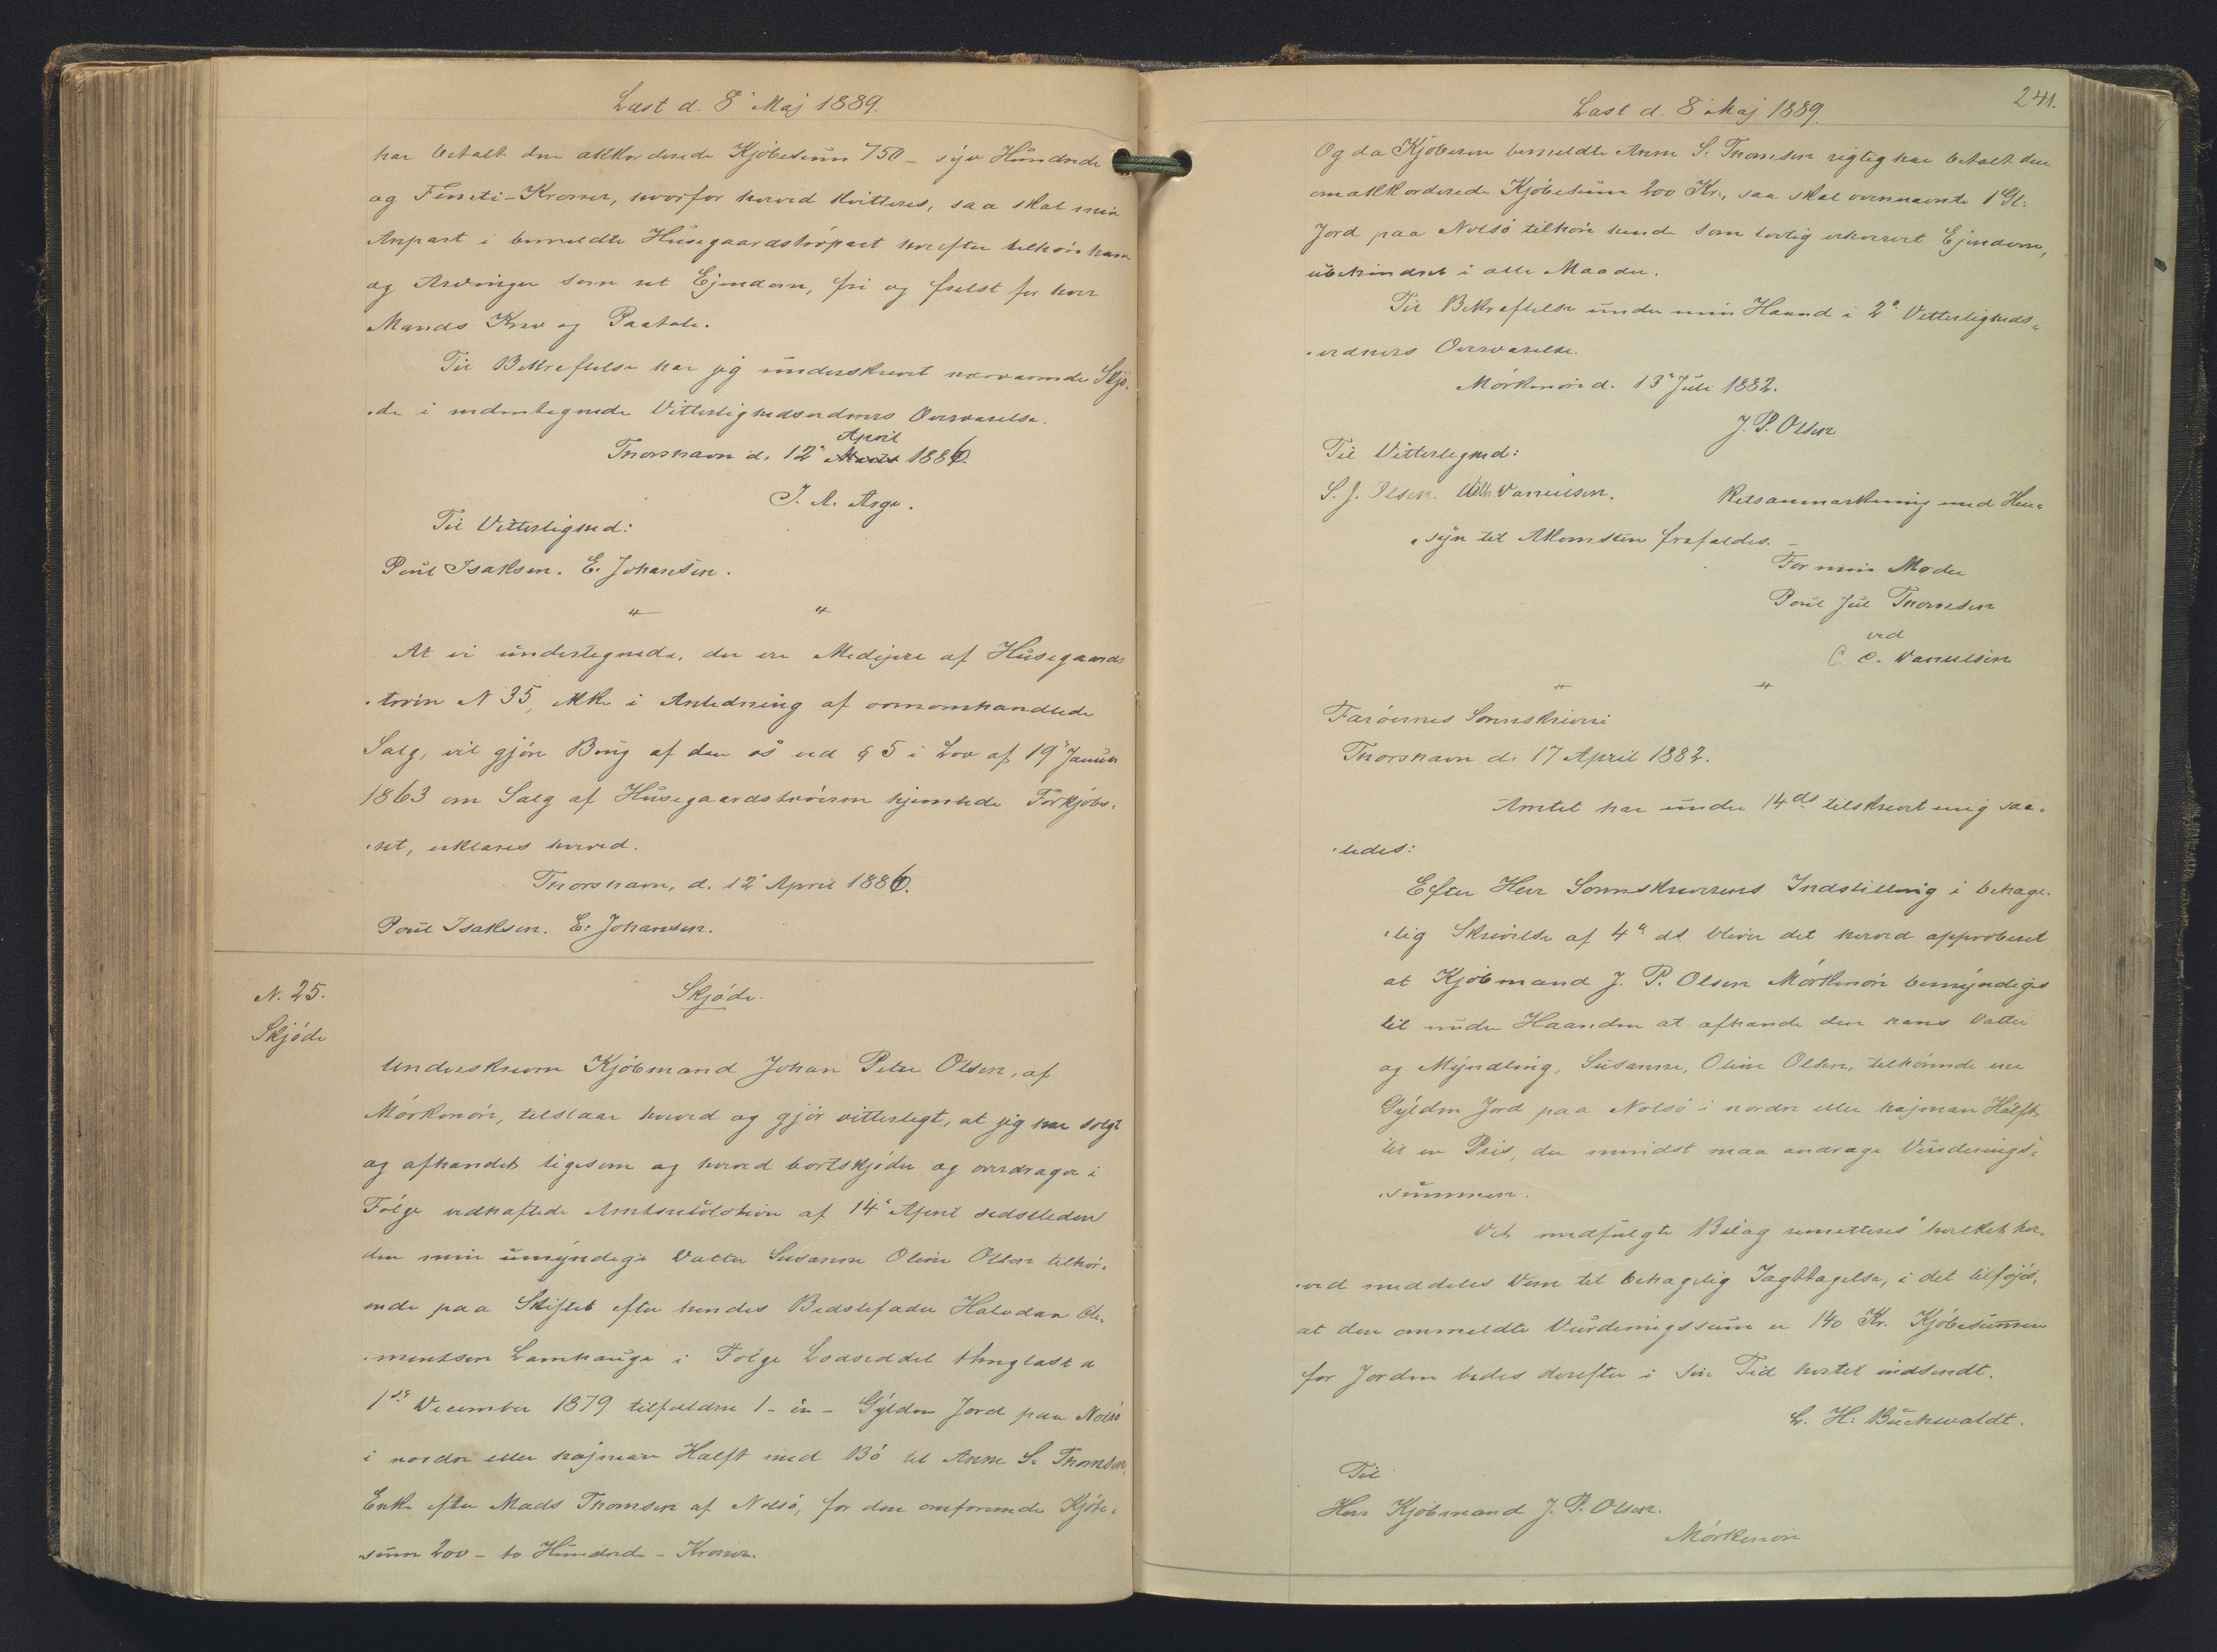 Læst d. 8' Maj 1889.
har betalt den akkorderede Kjöbesum 750 - syv Hundrede
og Femti - Kroner, hvorfor herved kvitteres, saa skal min
Anpart i bemeldte Husegaardströpart herefter tilhöre ham
og Arvinger som ret Ejendom, fri og frelst for hver
Mands Krav og Paatale.
Til Bekræftelse har jeg underskrevet nærværende Skjö-
-de i medundertegnede Vitterlighedsvidners Overværelse.
April
Thorshavn d. 12' Marts 1886.
J. A. Arge.
Til Vitterlighed:
Poul Isaksen. E. Johansen.
" "
At vi undertegnede, der ere Medejere af Husegaards-
-tröen N 35, ikke i Anledning af ovenomhandlede
Salg, vil gjöre Brug af den os ved § 5 i Lov af 19' Januar
1863 om Salg af Husegaardströerne hjemlede Forkjöbs-
-ret, erklæres herved.
Thorshavn, d. 12' April 1886.
Poul Isaksen. E. Johansen.
N. 25.
Skjöde
Skjöde.
Underskrevne Kjöbmand Johan Peter Olsen, af
Mörkenöre, tilstaar herved og gjör vitterligt, at jeg har solgt
og afhændet ligesom og herved bortskjöder og overdrager i
Fölge vedhæftede Amtsresolution af 14' April sidstleden
den min umyndige Datter Susanne Oline Olsen tilhör-
ende paa Skiftet efter hendes Bedstefader Halvdan Cle-
-mentsen Lamhauge i Fölge Lodseddel thinglæst d
1ste December 1879 tilfaldne 1 - en - Gylden Jord paa Nolsö
i nordre eller högmare Halft med Bö til Anne S. Thomsen,
Enke efter Mads Thomsen af Nolsö, for den omforenede Kjöbe-
sum 200 - to Hundrede - Kroner.
241.
Læst d. 8' Maj 1889.
Og da Kjöberen bemeldte Anne S. Thomsen rigtig har betalt den
omakkorderede Kjöbesum 200 Kr., saa skal ovennævnte 1 Gl.
Jord paa Nolsö tilhöre hende som lovlig erhvervet Ejendom,
ubehindret i alle Maader.
Til Bekræftelse under min Haand i 2' Vitterligheds-
-vidners Overværelse.
Mörkenöre d. 13' Juli 1882.
J. P. Olsen
Til Vitterlighed:
S. J. Olsen. Wilh. Danielsen.
Retsanmærkning med Hen-
-syn til Adkomsten frafaldes.
For min Moder
Poul Jul Thomsen
ved
C. C. Danielsen
" "
Færöernes Sorenskriveri
Thorshavn d. 17 April 1882.
Amtet har under 14ds tilskrevet mig saa-
-ledes:
Efter Herr Sorenskriverens Indstilling i behage-
-lig Skrivelse af 4' ds bliver det herved approberet
at Kjöbmand J. P. Olsen Mörkenöre bemyndiges
til under Haanden at afhænde den hans Datter
og Myndling, Susanne, Oline Olsen, tilhörende ene
Gylden Jord paa Nolsö i nordre eller højmare Hálft
til en Pris, der mindst maa andrage Vurderings-
-summen.
Det medfulgte Bilag remitteres" hvilket her-
-ved meddeles Dem til behagelig Iagttagelse, i det tilföjes,
at den ommeldte Vurderingssum er 140 Kr. Kjöbesummen
for Jorden bedes derefter i sin Tid hertil indsendt.
L. H. Buchwaldt.
Til
Herr Kjöbmand J. P. Olsen.
Mörkenöre